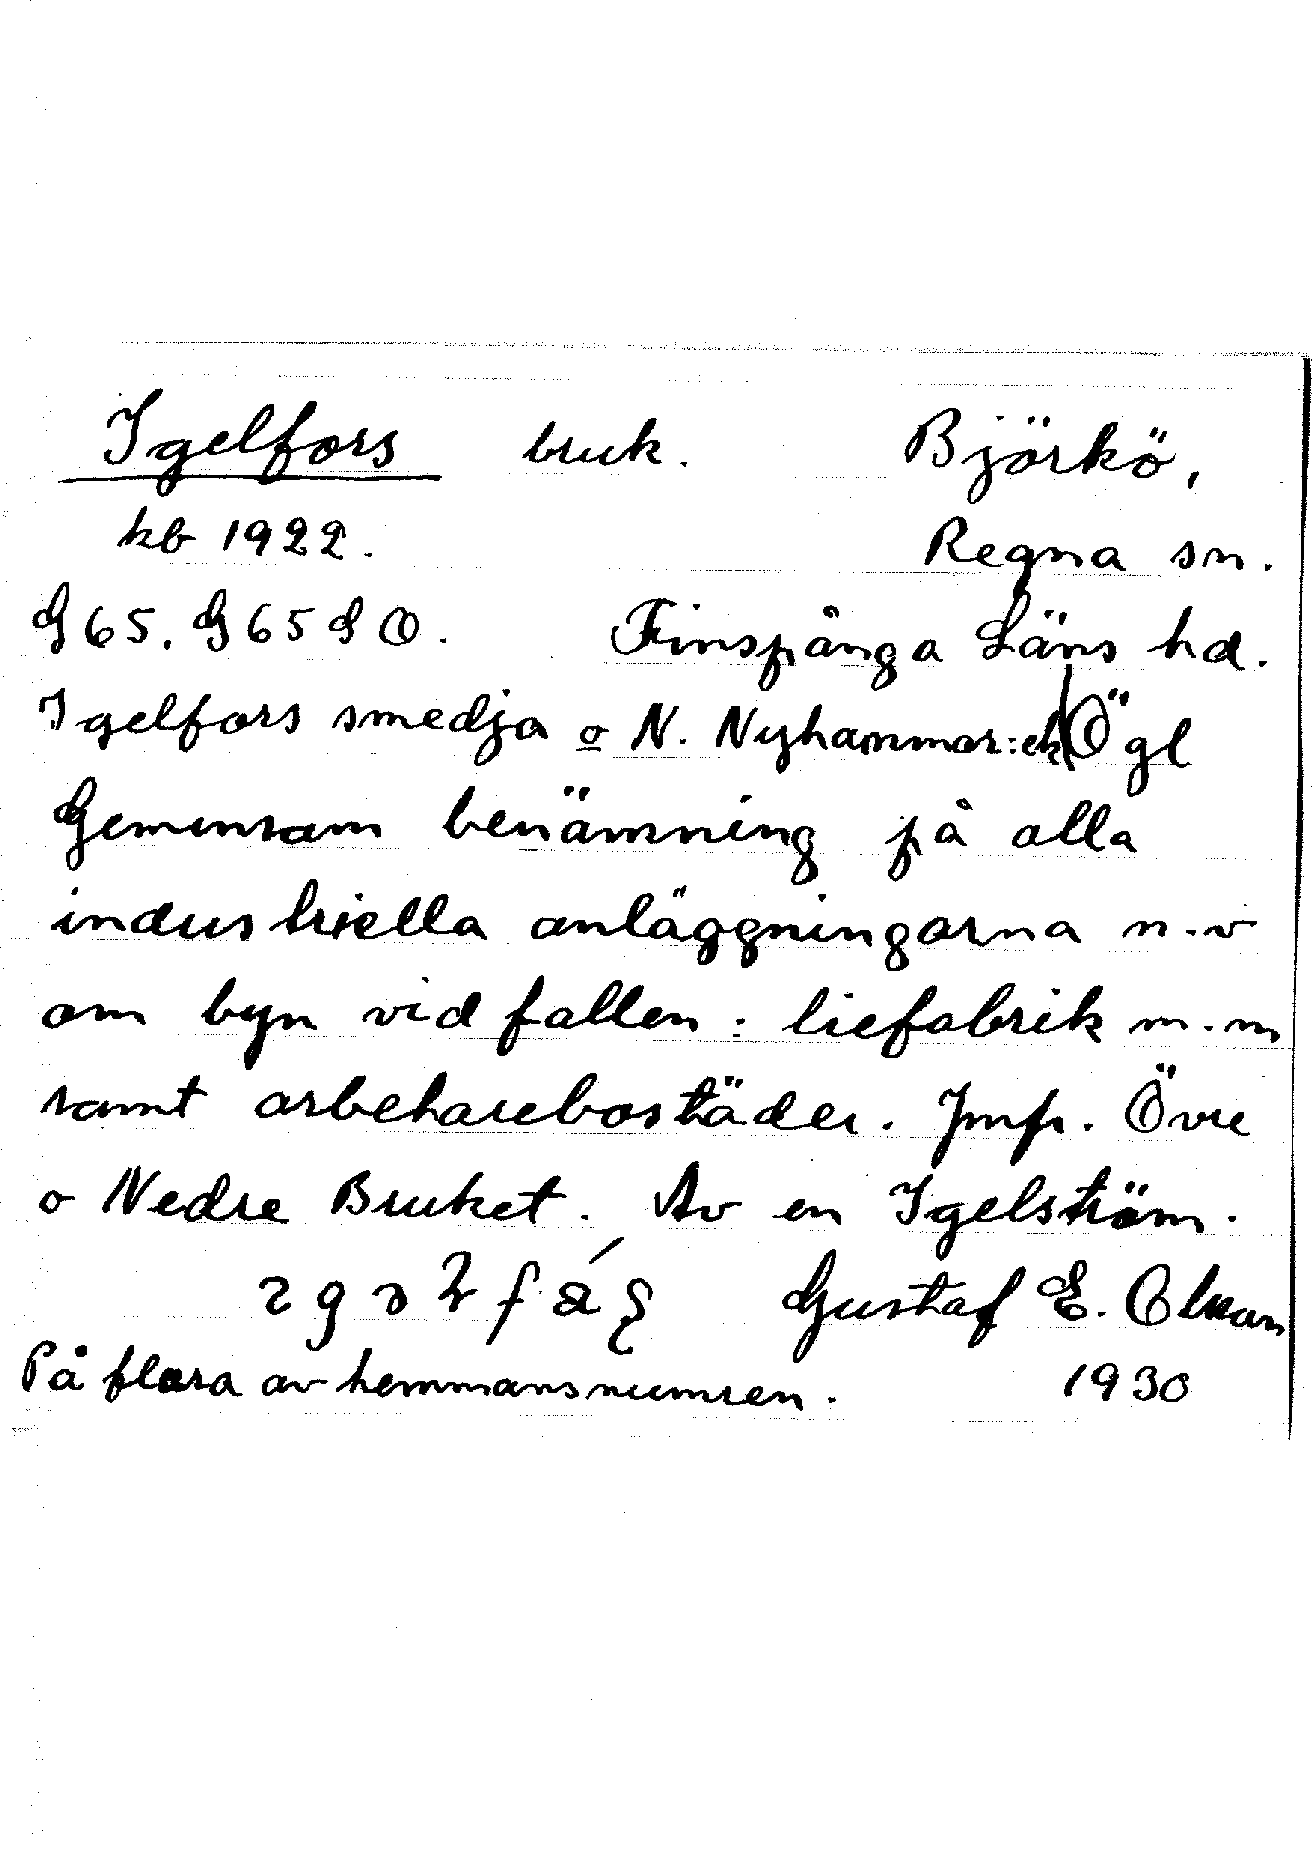 Igelfors bruk. Björkö,
kb 1922. Regna sn.
G 65. G 65 S O. Finspånga Läns hd.
Igelfors smedja o N. Nyhammar: ek Ögl
Gemensam benämning på alla
industriella anläggningarna n.v
om byn vid fallen: liefabrik m.m
samt arbetarebostäder. Jmfr. Övre
o Nedre Bruket. Av en Igelström.
Gustaf E. Olsson
På flera av hemmansnumren. 1930